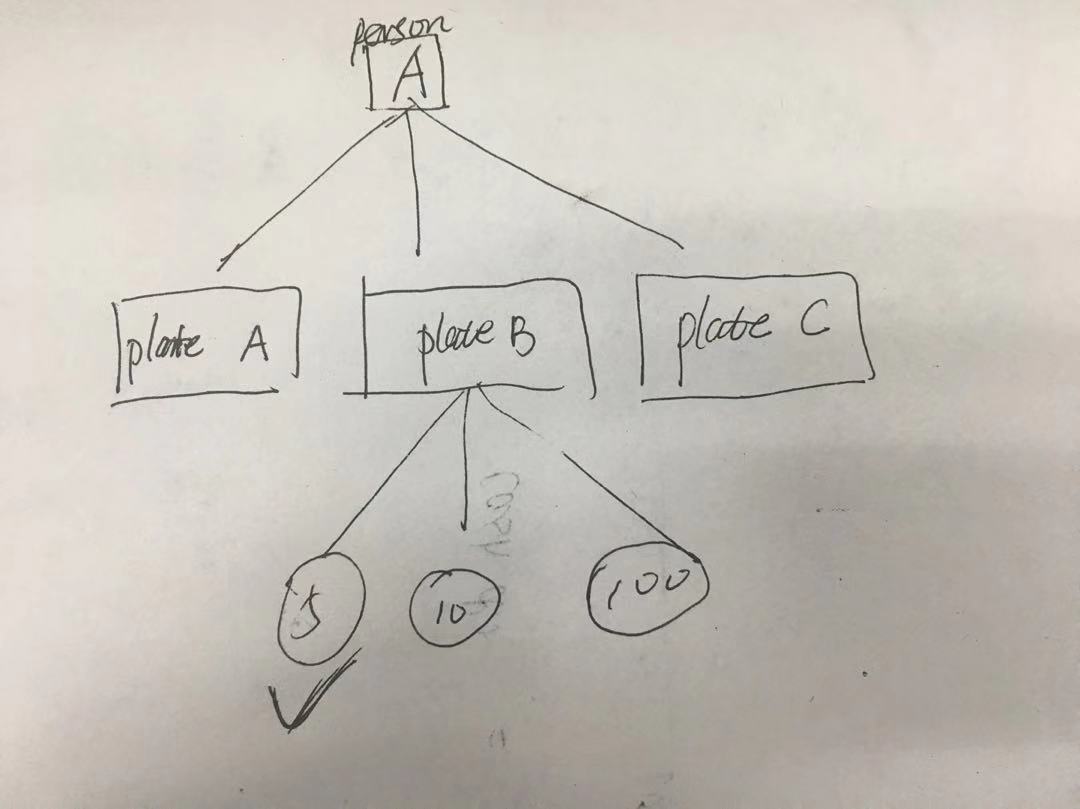 person
A
plate A
plate B
plate C
5
10
100